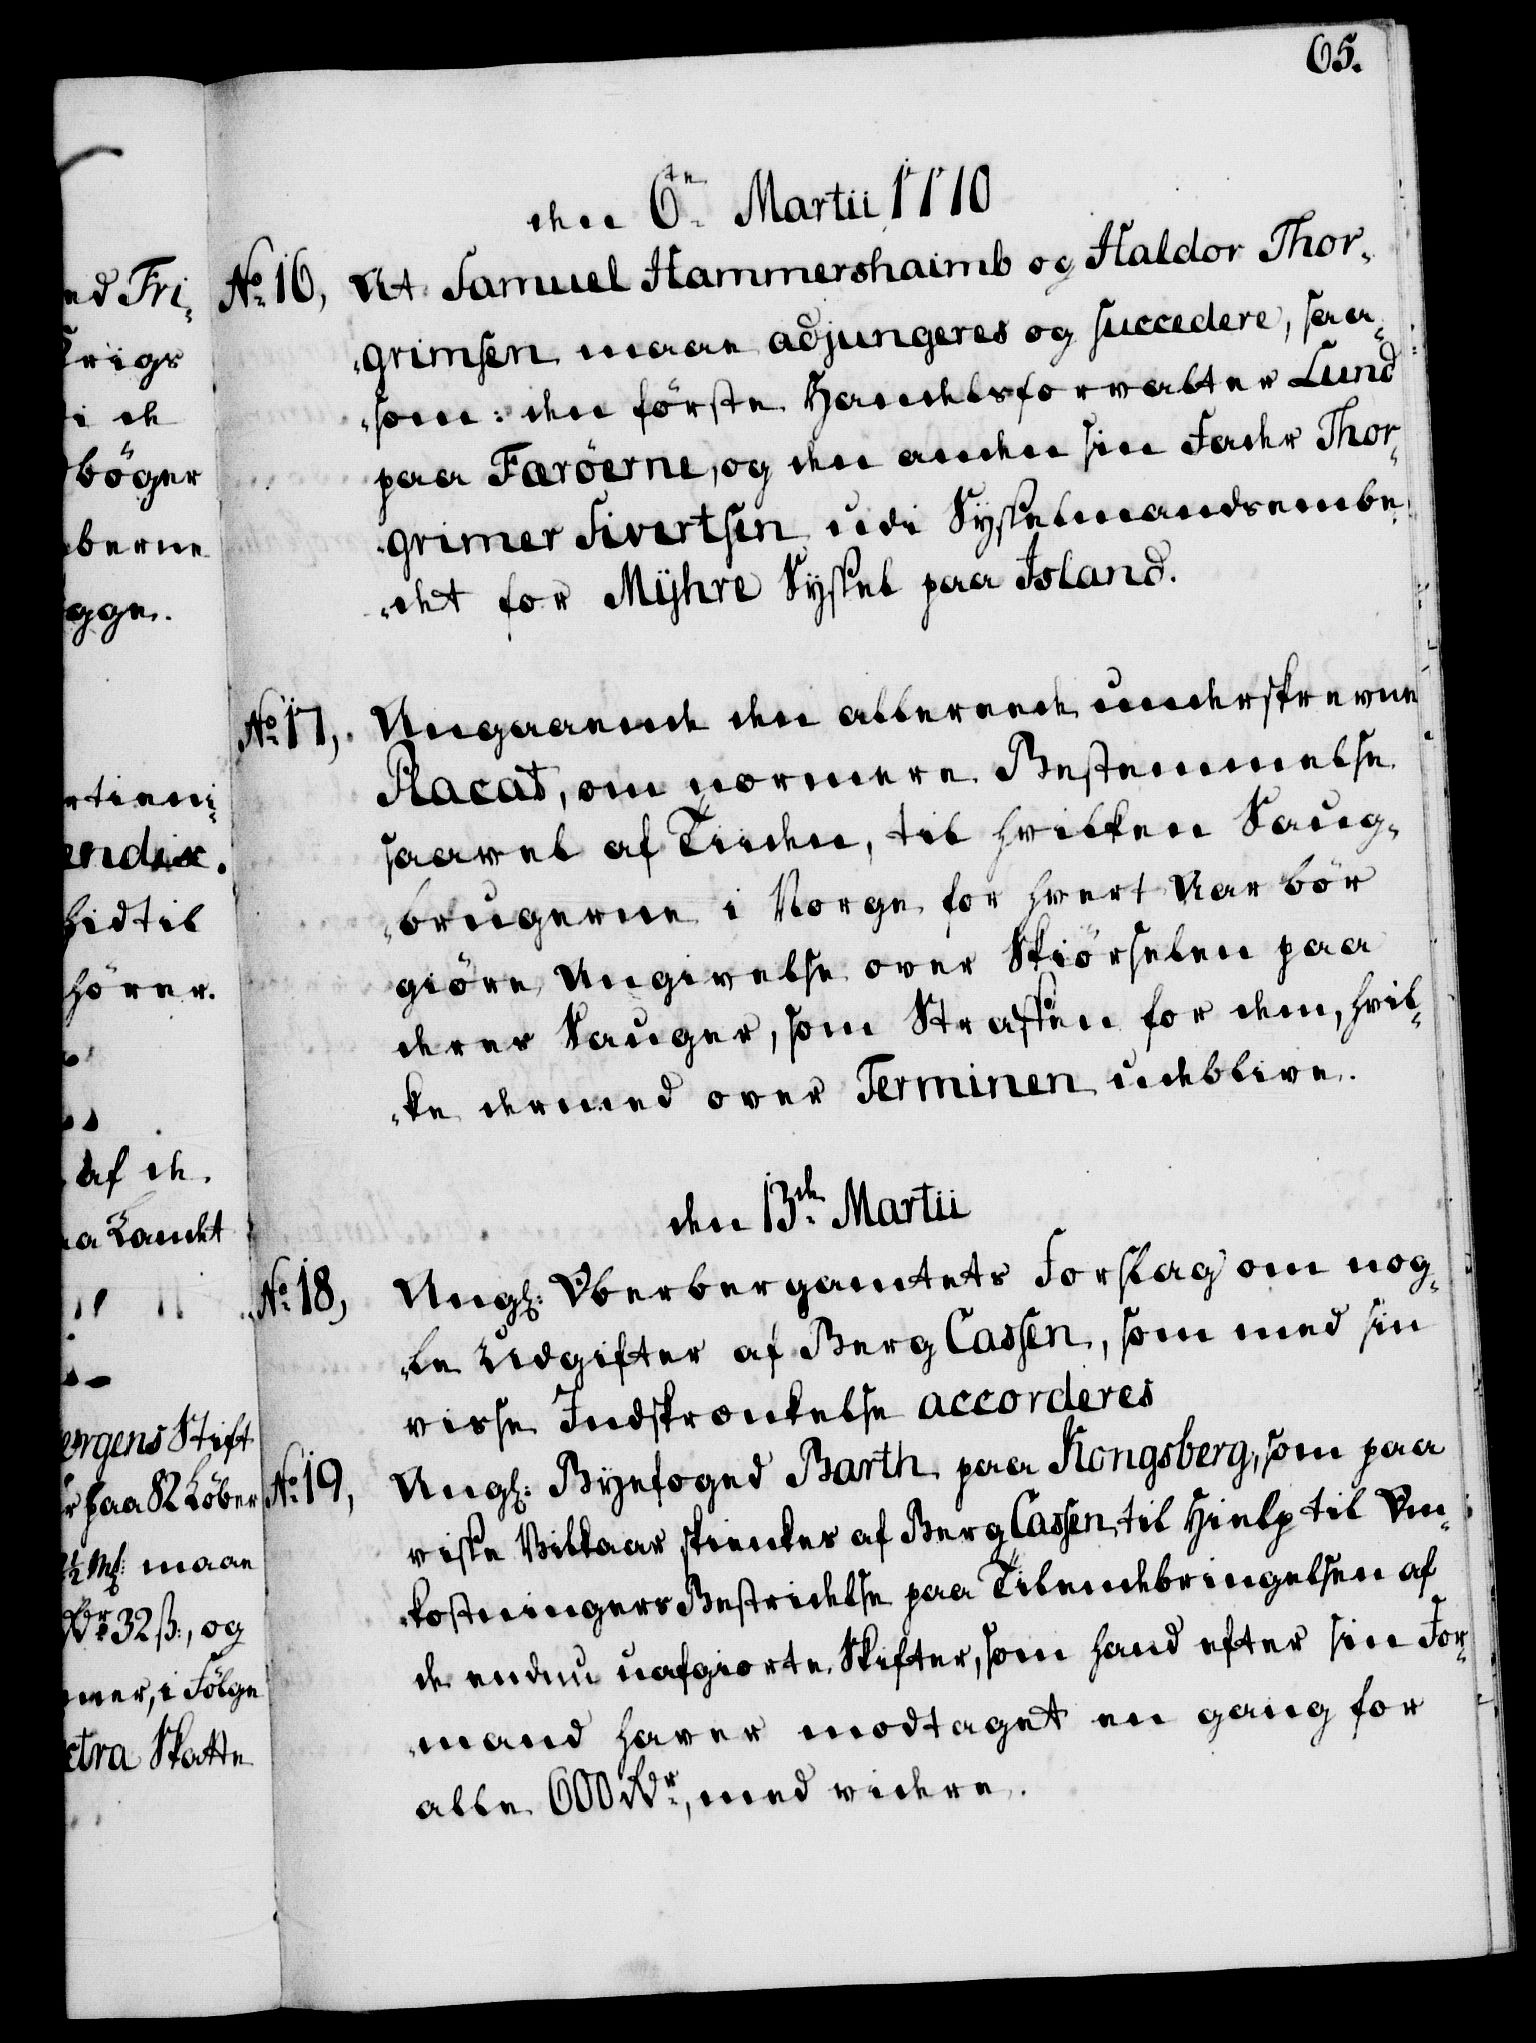 65.
den 6te Martii 1770
No 16, At Samuel Hammershaimb og Haldor Thor-
-grimsen maae adjungeres og succedere, saa-
-som: den förste Handelsforvalter Lund
paa Færöerne, og den anden sin Fader Thor-
-grimer Sivertsen udi Sysselmandsembe-
-det for Mÿhre Syssel paa Island.
No 17, Angaaende den allereede underskrevne
Placat, om nærmere Bestemmelse
saavel af Tiiden, til hvilken Saug-
-brugerne i Norge for hvert Aar bör
giöre Angivelse over Skiörselen paa
deres Sauger, som Straffen for dem, hvil-
-ke dermed over Terminen udeblive.
den 13de Martii
No 18, Ang: Overbergamtets Forslag om nog-
-le Udgifter af Berg Cassen, som med sin
visse Indskrænkelse accorderes
No 19, Ang: Byefoged Barth paa Kongsberg, som paa
visse Vilkaar skienkes af Berg Cassen til Hielp til Om-
-kostningers Bestridelse paa Tilendebringelsen af
de endnu uafgiorte Skifter, som hand efter sin For-
-mand haver modtaget en gang for
alle 600 Rdr, med videre.
ed Fri-
Krigs
i de
böger
berne
gge.
rtieni-
endix.
hidtil
hörer.
af de
Landet
ergens Stift
paa 82 Löber
maae
32 ß:, og
mer, i Fölge
xtra Skatte